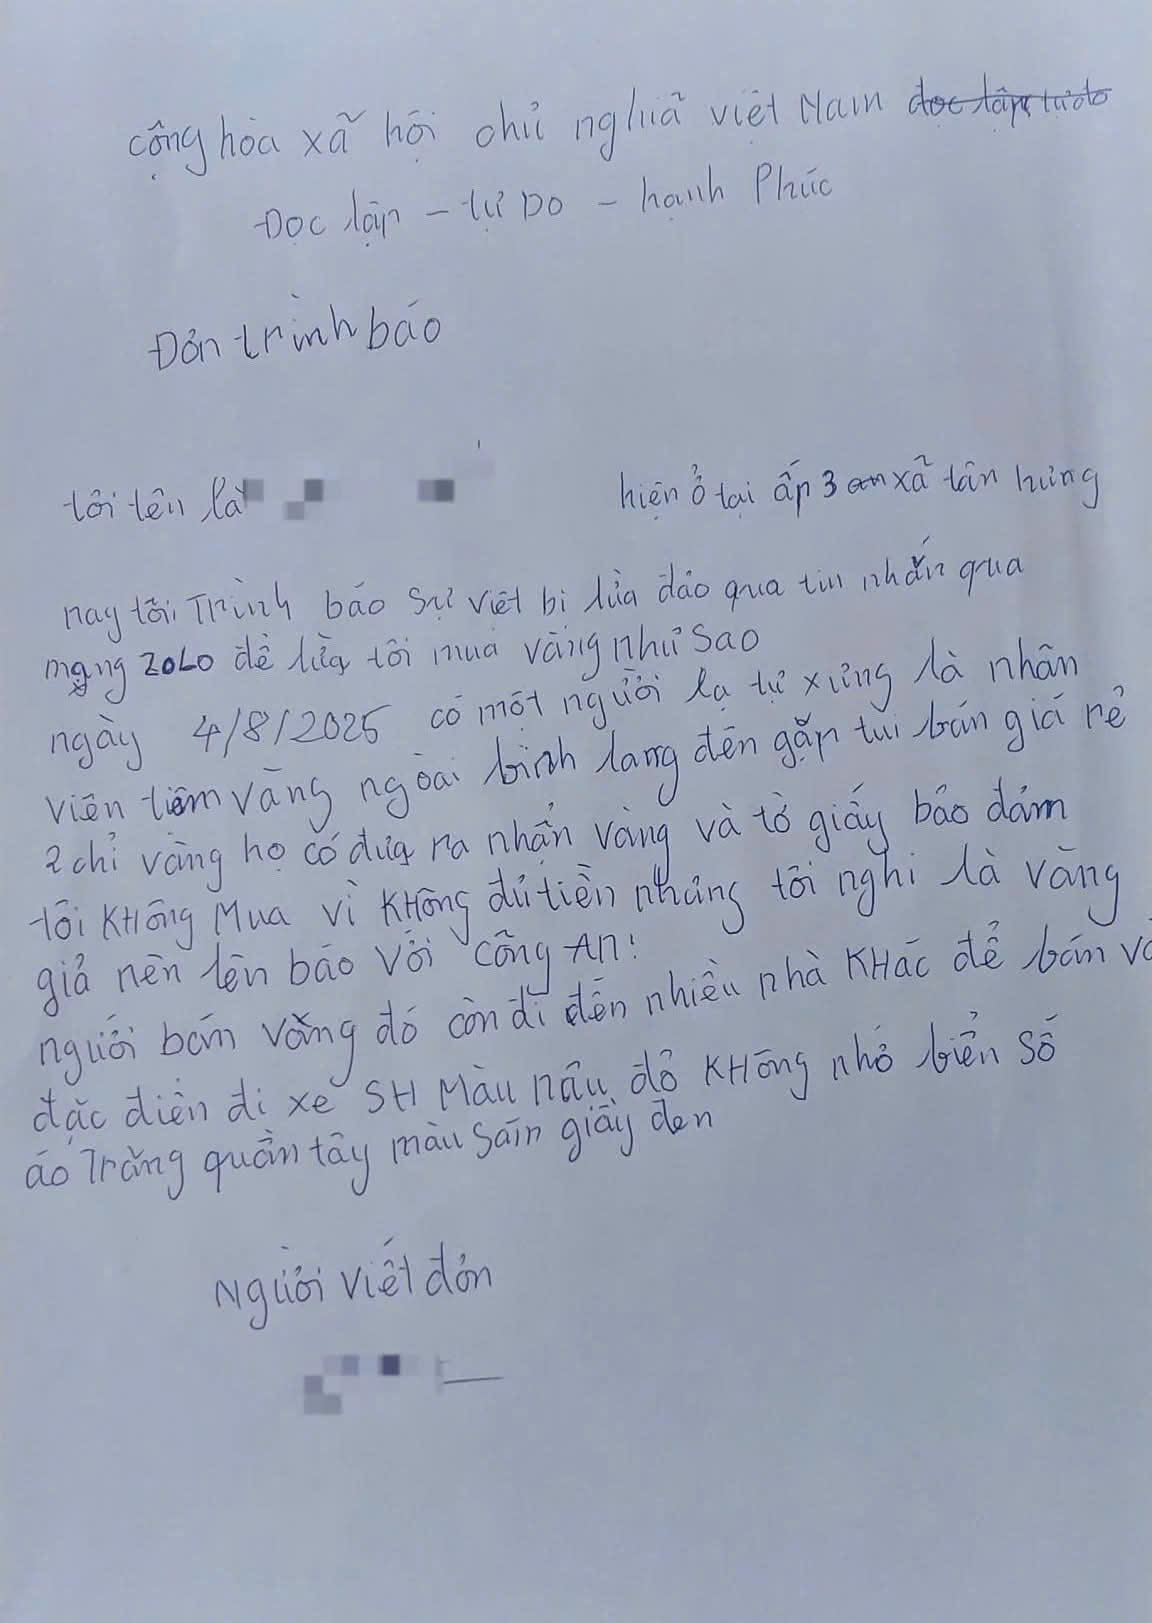 cộng hòa xã hội chủ nghiã việt Nam đọc lập tự do
Đọc lập - tự Do - hạnh Phúc
Đơn trình báo
tôi tên là hiện ở tại ấp 3 xã tân hưng
nay tôi Trình báo Sự việt bị lừa đảo qua tin nhắn qua
mạng ZOLO để lừa tôi mua vàng như Sao
ngày 4/8/2025 có một người lạ tự xưng là nhân
viên tiệm vàng ngoài bình lang đến gặp tui bán giá rẻ
2 chỉ vàng họ có đưa ra nhẫn vàng và tờ giấy bảo đảm
tôi KHông Mua vì KHông đủ tiền nhưng tôi nghi là vàng
giả nên lên báo với công AN!
người bán vàng đó còn đi đến nhiều nhà KHác để bán và
đặc điển đi xe SH Màu nâu đỏ KHông nhớ biển số
áo Trắng quần tây màu Sấn giầy đen
Người viết đơn